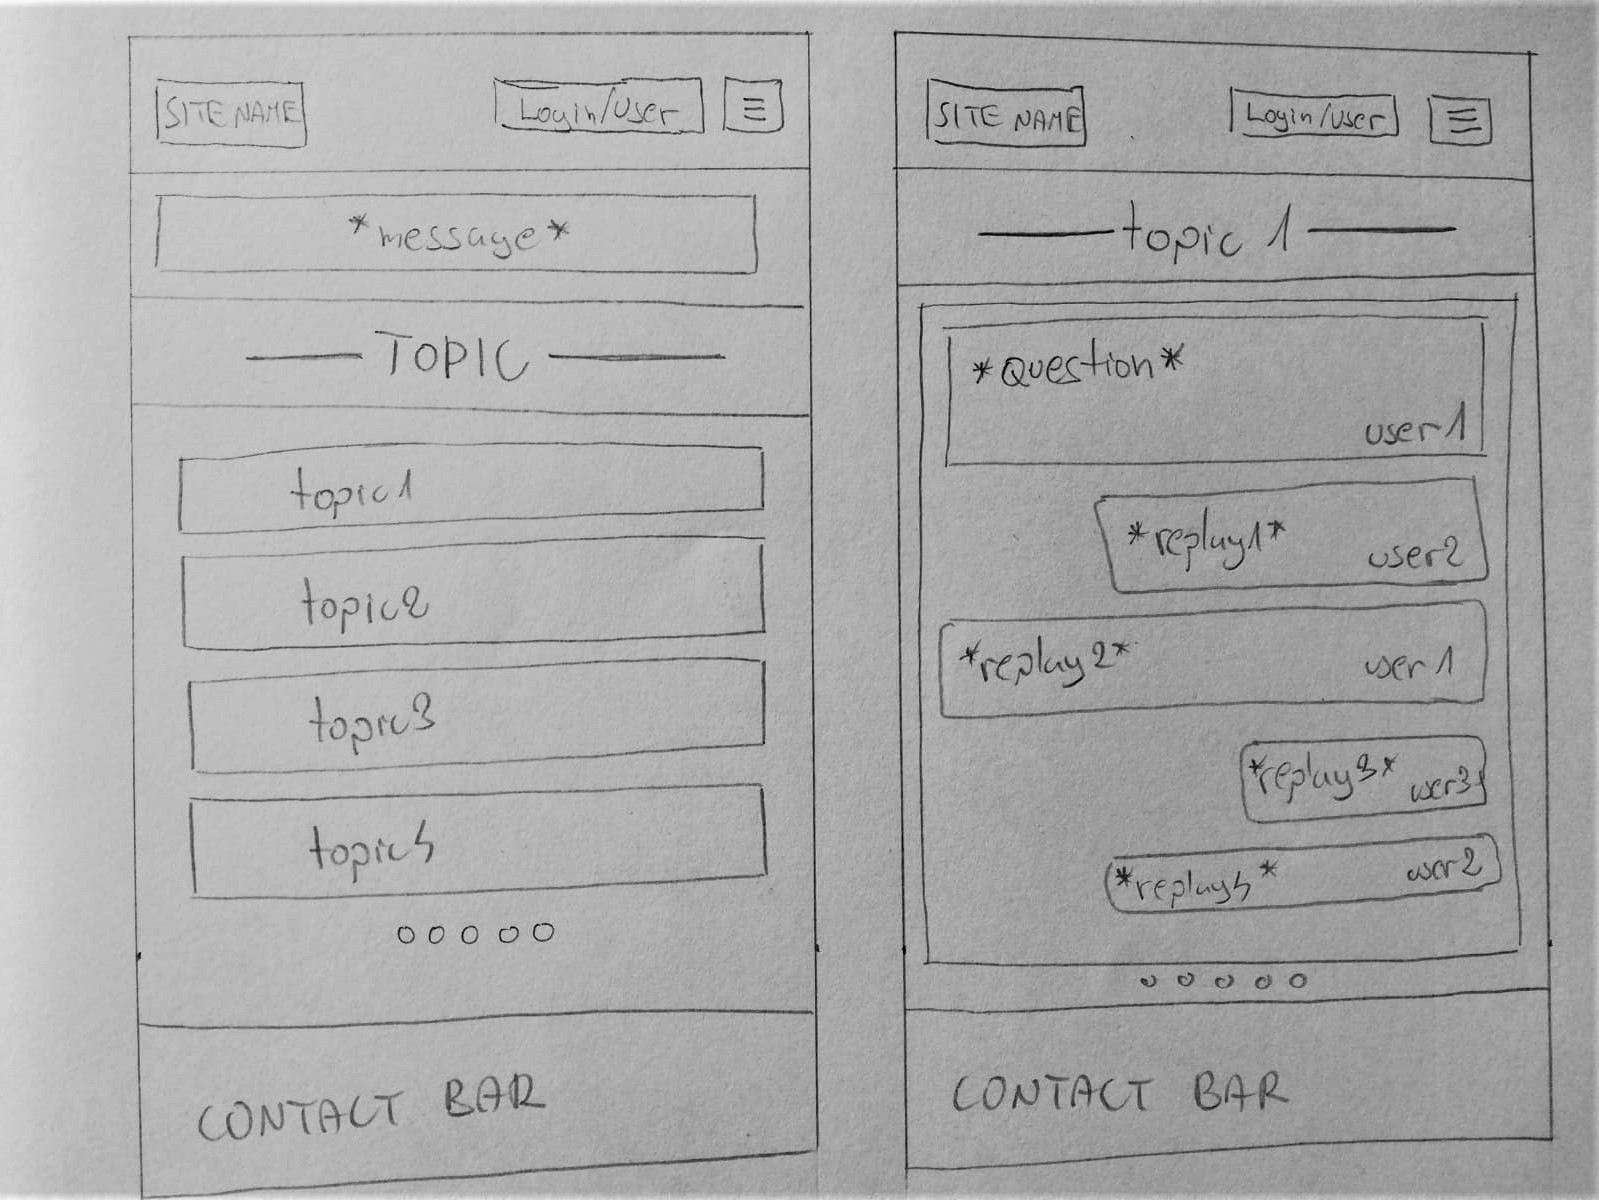 SITE NAME
Login/User
*message*
TOPIC
topic1
topic2
topic3
topic4
CONTACT BAR
SITE NAME
Login/User
topic 1
*Question*
user1
*replay1*
user2
*replay2*
user1
*replay3*
user3
*replay4*
user2
CONTACT BAR